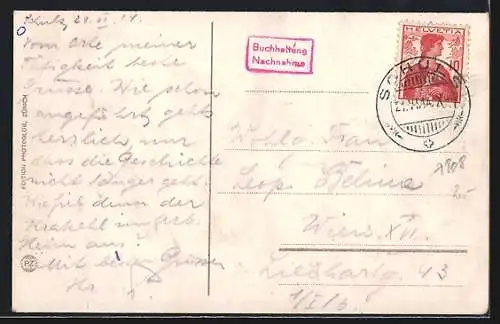 Schuls 21. VI. 14.
Vom Orte meiner
Tätigkeit beste
Grüsse. Wie schon
angeführt geht's
herrlich, nur
dass die Geschichte
nicht länger geht.
Wie ist denn der
Heim aus?
Mit besten Grüssen
EDITION PHOTOGLOB, ZÜRICH
PZ
Buchhaltung
Nachnahme
HELVETIA
10
SCHULS
Wohlg. Frau
Leop. Bělina
Wien XVI.
Liebhartsg. 43
1/I/5.